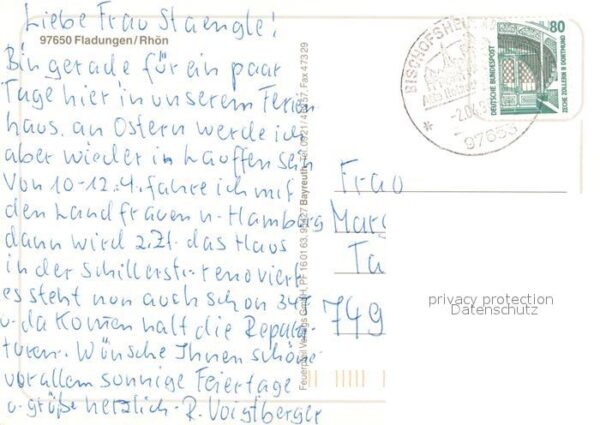 Liebe Frau Staengle!
97650 Fladungen/Rhön
Bin gerade für ein paar
Tage hier in unserem Ferien
haus, an Ostern werde ich
aber wieder in Lauffen sein
Von 10-12.4. fahre ich mit
den Landfrauen n. Hamburg
dann wird z.Zt. das Haus
in der Schillerstr. renoviert
es steht nun auch schon 34J
u. da komen halt die Repara-
turen. Wünsche Ihnen schöne
vor allem sonnige Feiertage
u. grüße herzlich - R. Voigtberger
Feuerpfeil Verlags GmbH, PF 16 01 63, 95427 Bayreuth, Tel. 0921/4 Fax 473 29
BISCHOFSHEI
-2.04.9
97653
80
DEUTSCHE BUNDESPOST
ZECHE ZOLLERN II DORTMUND
Frau
Mar
Ta
749
privacy protection
Datenschutz